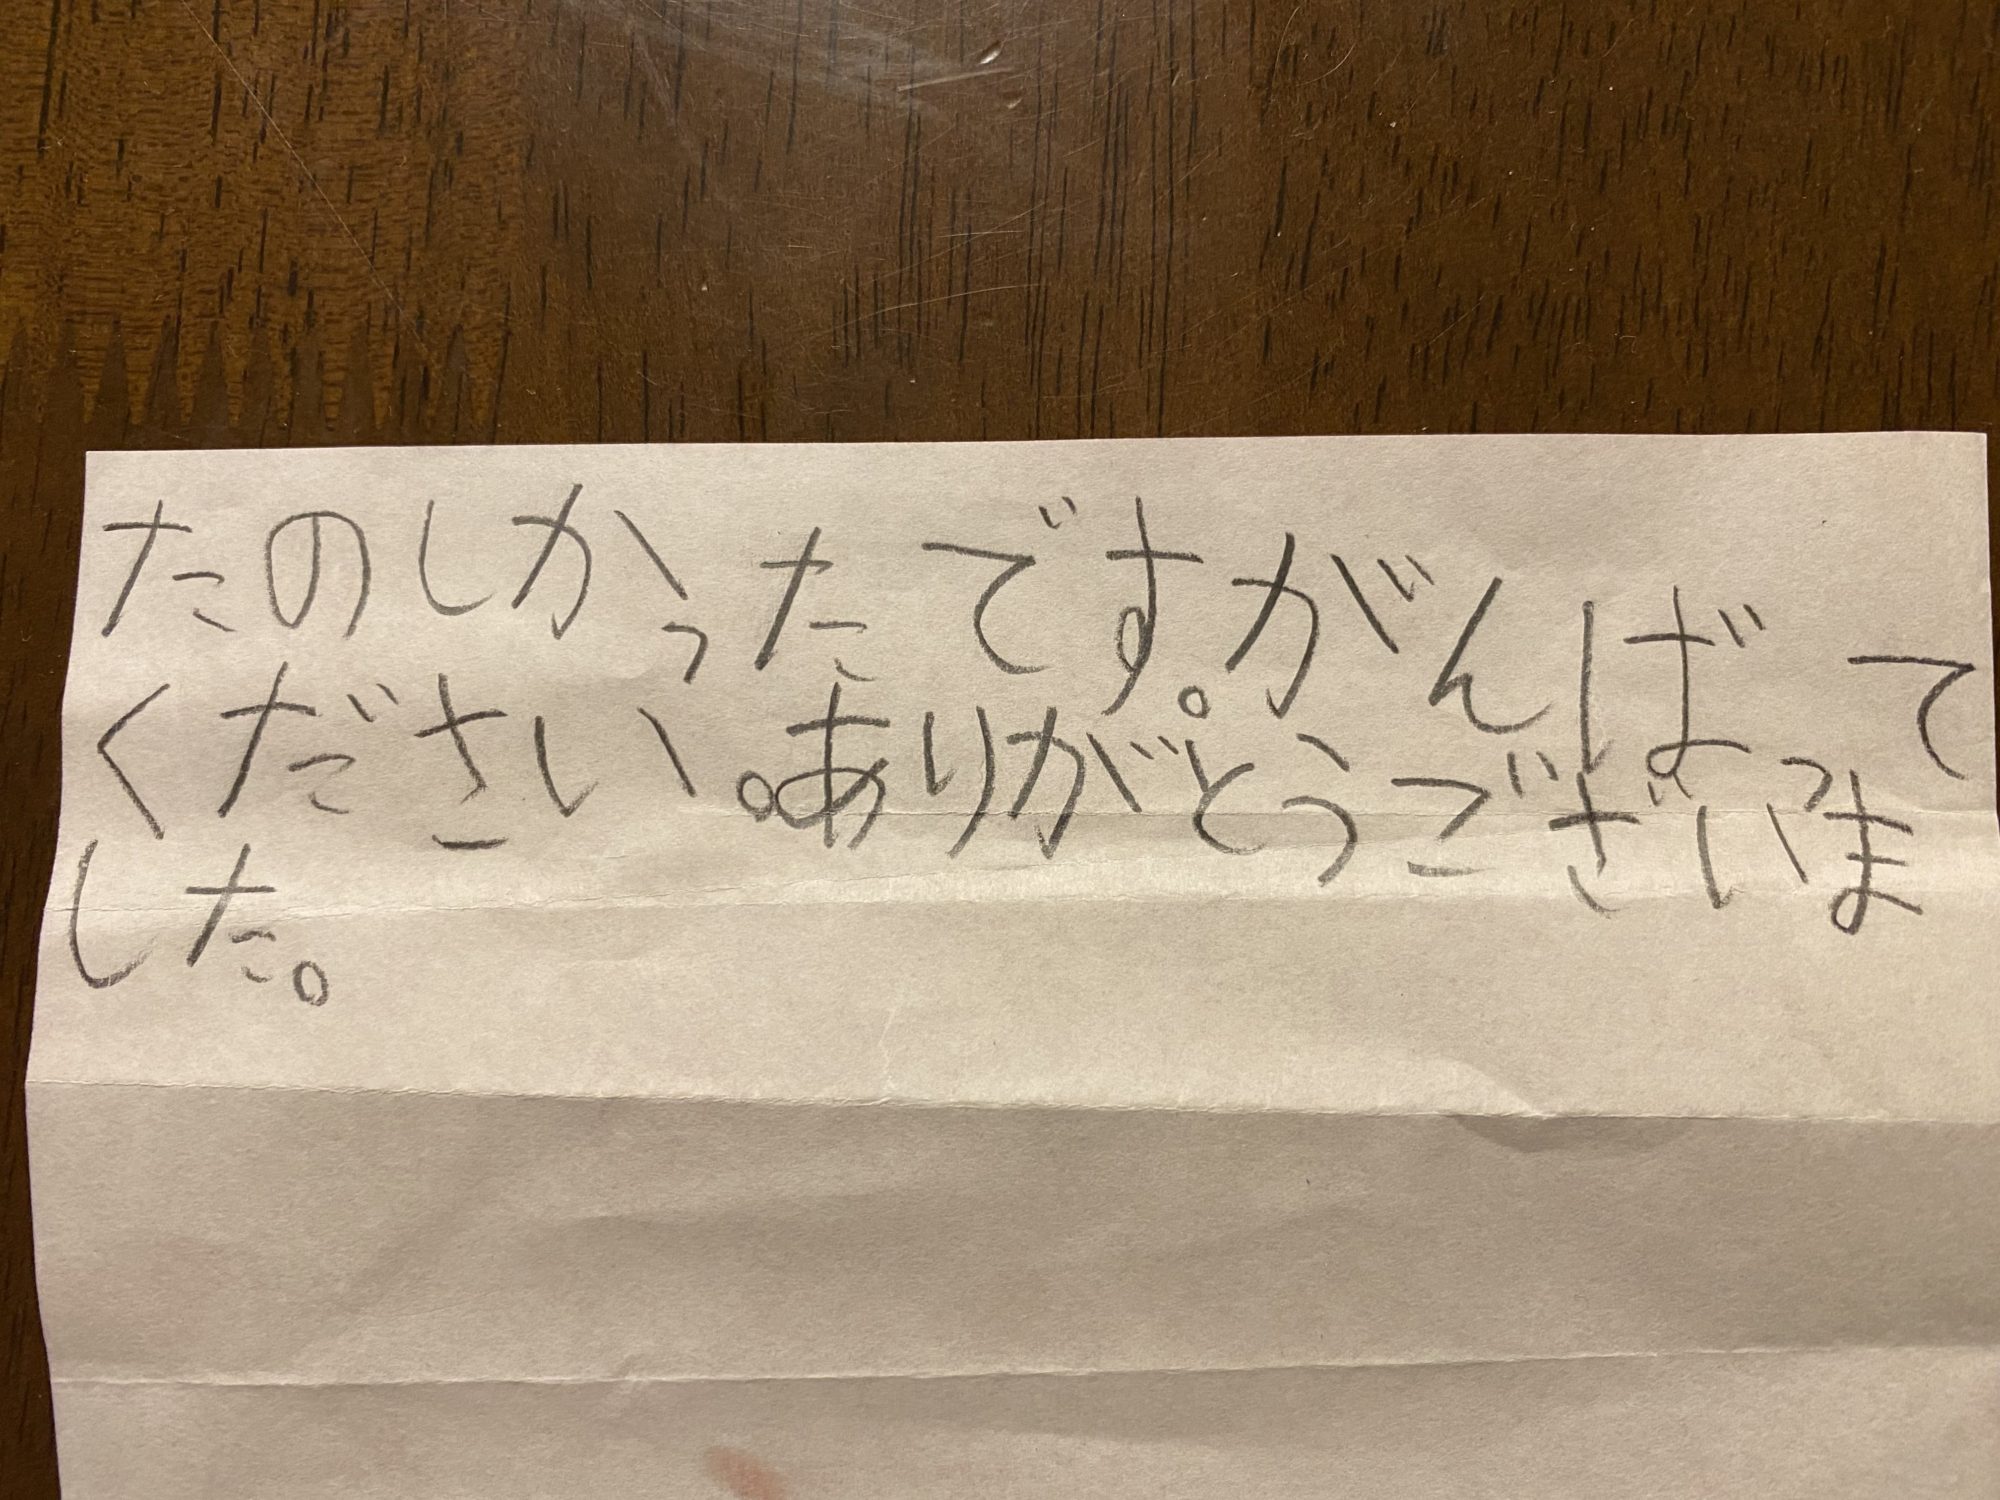 たのしかったです。がんばって
ください。ありがとうございま
した。